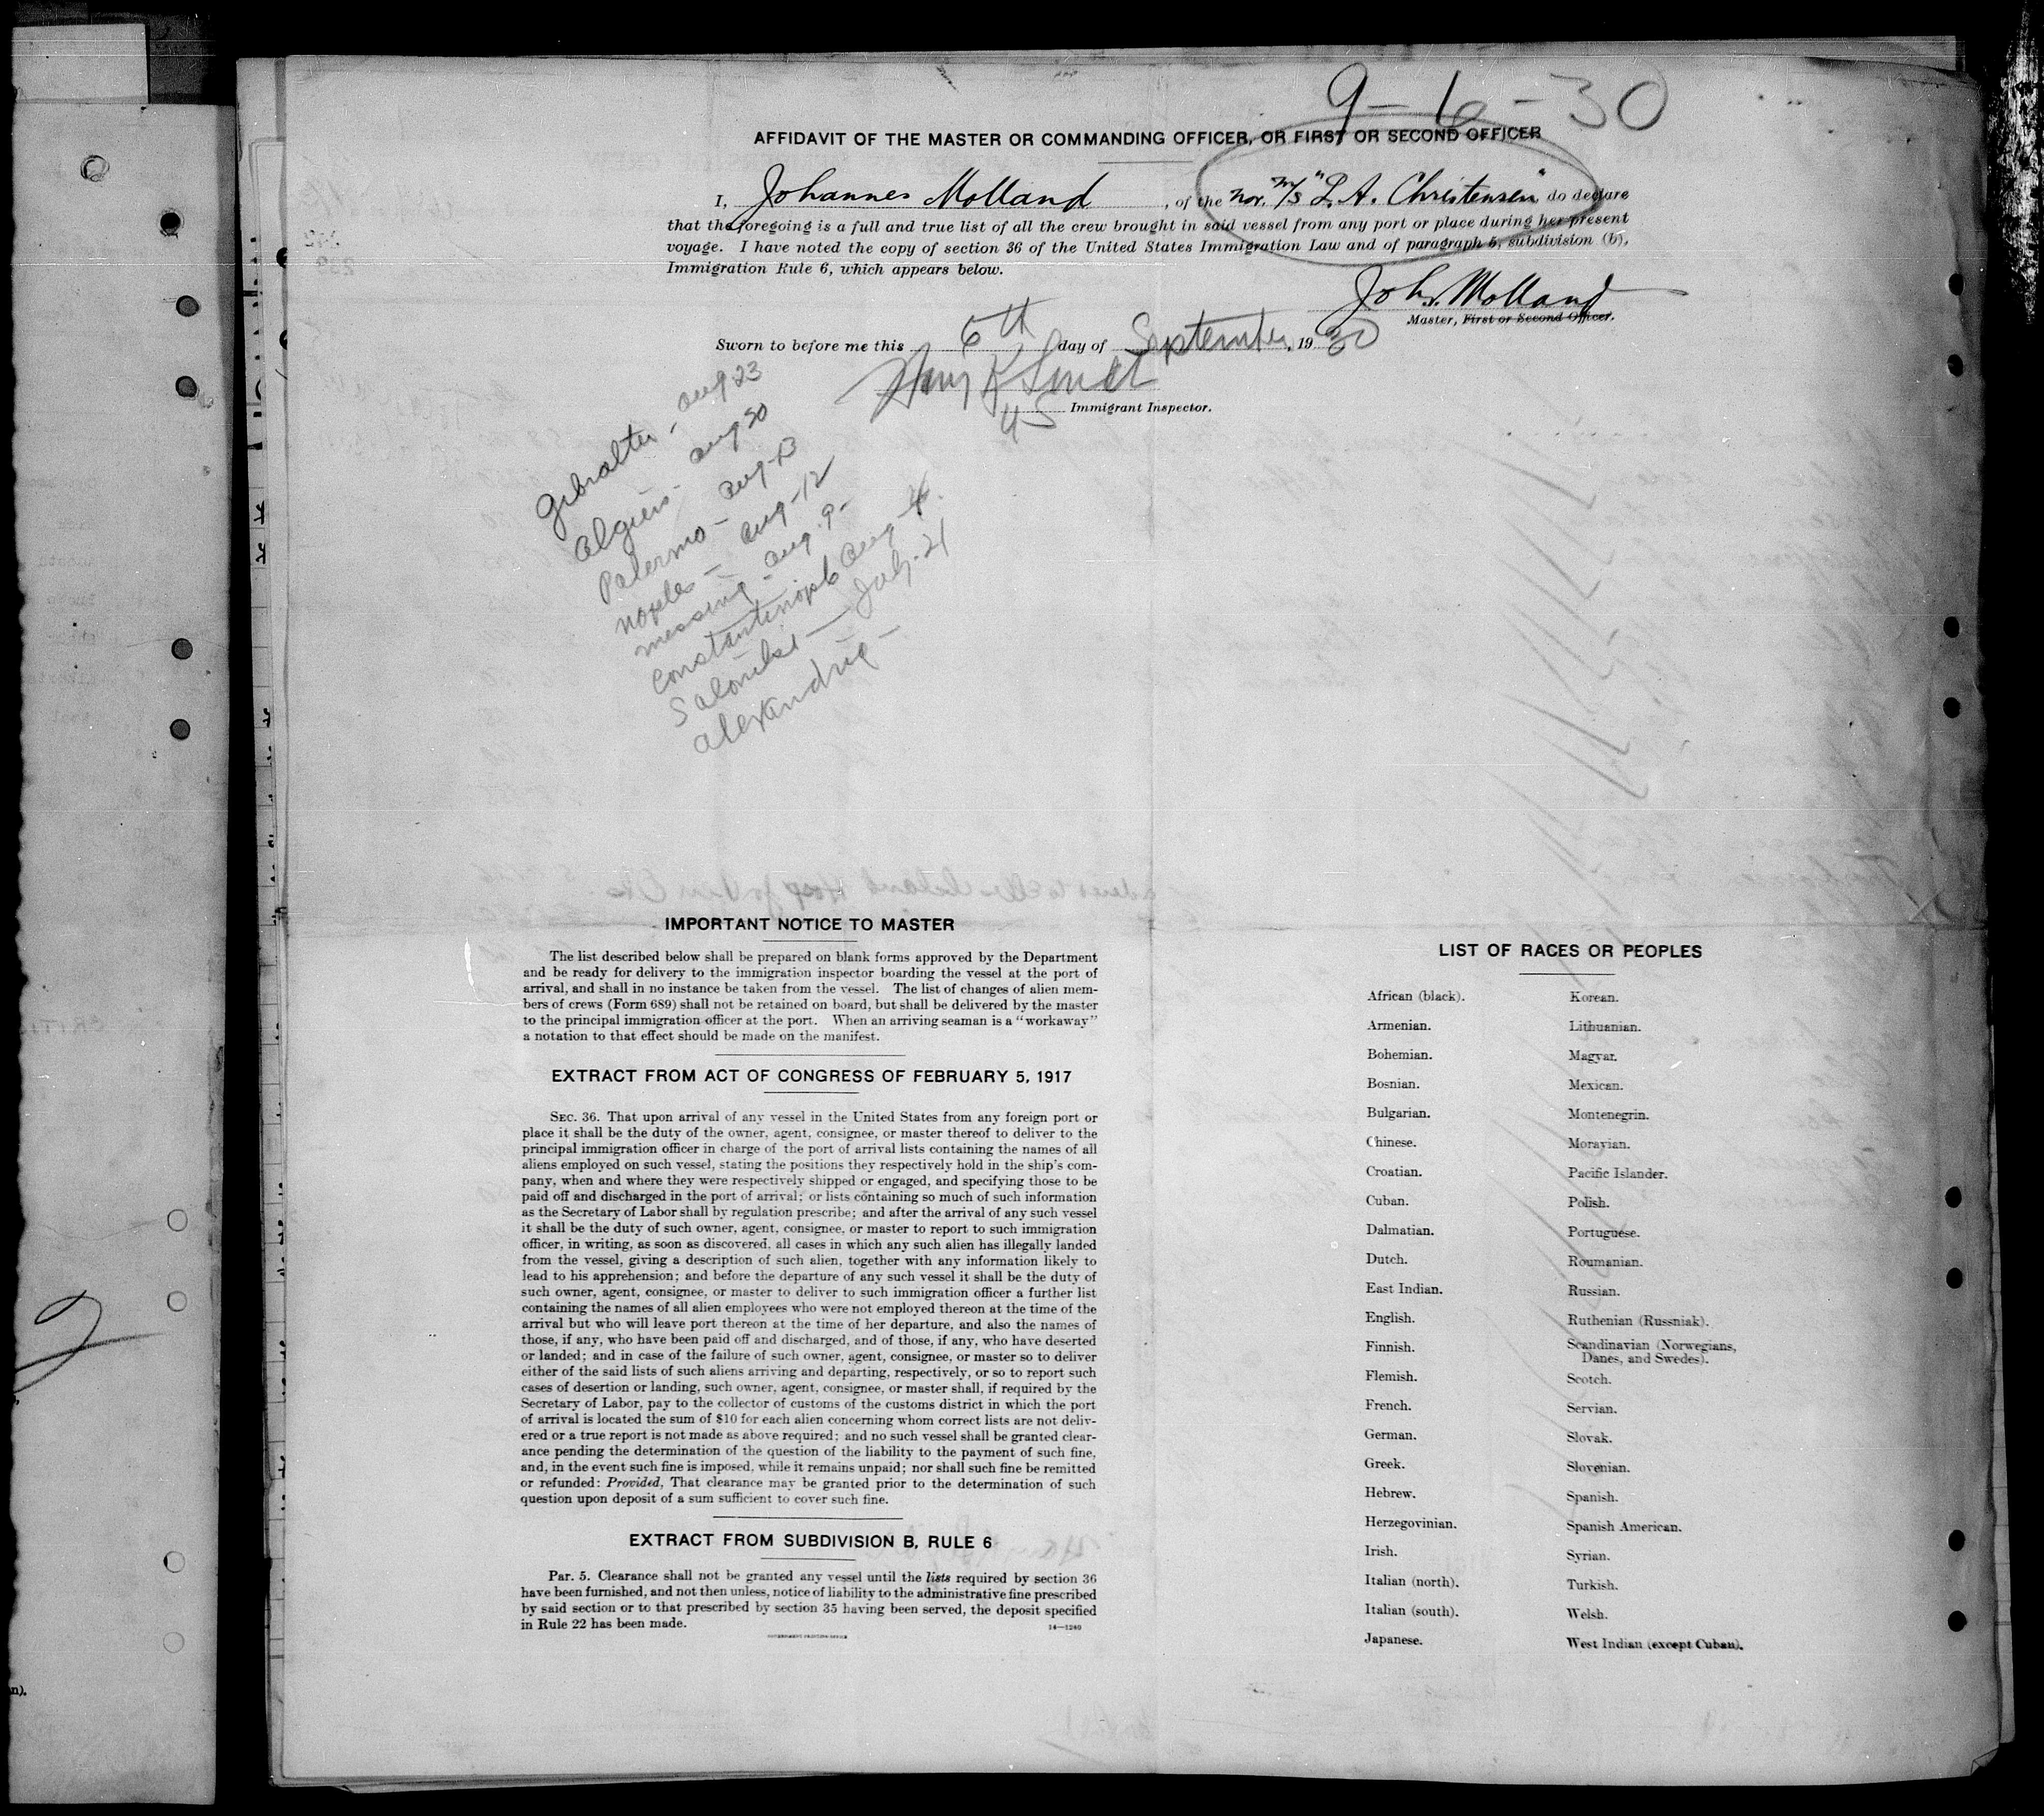 9-6-30
AFFIDAVIT OF THE MASTER OR COMMANDING OFFICER, OR FIRST OR SECOND OFFICER
I, Johannes Molland, of the Nor. M/S "L. A. Christensen" do declare
that the foregoing is a full and true list of all the crew brought in said vessel from any port or place during her present
voyage. I have noted the copy of section 36 of the United States Immigration Law and of paragraph 5, subdivision (b),
Immigration Rule 6, which appears below.
Joh. Molland
Master, First or Second Officer.
Sworn to before me this 6th day of September, 1930
US Immigrant Inspector.
Gibralter - aug 23
algiers - aug 20
Palermo - aug 13
noples - aug-12
messina - aug. 9-
Constantinople aug 4.
Saloniki - July-21
alexandria -
IMPORTANT NOTICE TO MASTER
The list described below shall be prepared on blank forms approved by the Department
and be ready for delivery to the immigration inspector boarding the vessel at the port of
arrival, and shall in no instance be taken from the vessel. The list of changes of alien mem-
bers of crews (Form 689) shall not be retained on board, but shall be delivered by the master
to the principal immigration officer at the port. When an arriving seaman is a "workaway"
a notation to that effect should be made on the manifest.
EXTRACT FROM ACT OF CONGRESS OF FEBRUARY 5, 1917
SEC. 36. That upon arrival of any vessel in the United States from any foreign port or
place it shall be the duty of the owner, agent, consignee, or master thereof to deliver to the
principal immigration officer in charge of the port of arrival lists containing the names of all
aliens employed on such vessel, stating the positions they respectively hold in the ship's com-
pany, when and where they were respectively shipped or engaged, and specifying those to be
paid off and discharged in the port of arrival; or lists containing so much of such information
as the Secretary of Labor shall by regulation prescribe; and after the arrival of any such vessel
it shall be the duty of such owner, agent, consignee, or master to report to such immigration
officer, in writing, as soon as discovered, all cases in which any such alien has illegally landed
from the vessel, giving a description of such alien, together with any information likely to
lead to his apprehension; and before the departure of any such vessel it shall be the duty of
such owner, agent, consignee, or master to deliver to such immigration officer a further list
containing the names of all alien employees who were not employed thereon at the time of the
arrival but who will leave port thereon at the time of her departure, and also the names of
those, if any, who have been paid off and discharged, and of those, if any, who have deserted
or landed; and in case of the failure of such owner, agent, consignee, or master so to deliver
either of the said lists of such aliens arriving and departing, respectively, or so to report such
cases of desertion or landing, such owner, agent, consignee, or master shall, if required by the
Secretary of Labor, pay to the collector of customs of the customs district in which the port
of arrival is located the sum of $10 for each alien concerning whom correct lists are not deliv-
ered or a true report is not made as above required; and no such vessel shall be granted clear-
ance pending the determination of the question of the liability to the payment of such fine,
and, in the event such fine is imposed, while it remains unpaid; nor shall such fine be remitted
or refunded: Provided, That clearance may be granted prior to the determination of such
question upon deposit of a sum sufficient to cover such fine.
EXTRACT FROM SUBDIVISION B, RULE 6
PAR. 5. Clearance shall not be granted any vessel until the lists required by section 36
have been furnished, and not then unless, notice of liability to the administrative fine prescribed
by said section or to that prescribed by section 35 having been served, the deposit specified
in Rule 22 has been made.
GOVERNMENT PRINTING OFFICE 14-1240
LIST OF RACES OR PEOPLES
African (black).
Armenian.
Bohemian.
Bosnian.
Bulgarian.
Chinese.
Croatian.
Cuban.
Dalmatian.
Dutch.
East Indian.
English.
Finnish.
Flemish.
French.
German.
Greek.
Hebrew.
Herzegovinian.
Irish.
Italian (north).
Italian (south).
Japanese.
Korean.
Lithuanian.
Magyar.
Mexican.
Montenegrin.
Moravian.
Pacific Islander.
Polish.
Portuguese.
Roumanian.
Russian.
Ruthenian (Russniak).
Scandinavian (Norwegians,
Danes, and Swedes).
Scotch.
Servian.
Slovak.
Slovenian.
Spanish.
Spanish American.
Syrian.
Turkish.
Welsh.
West Indian (except Cuban).